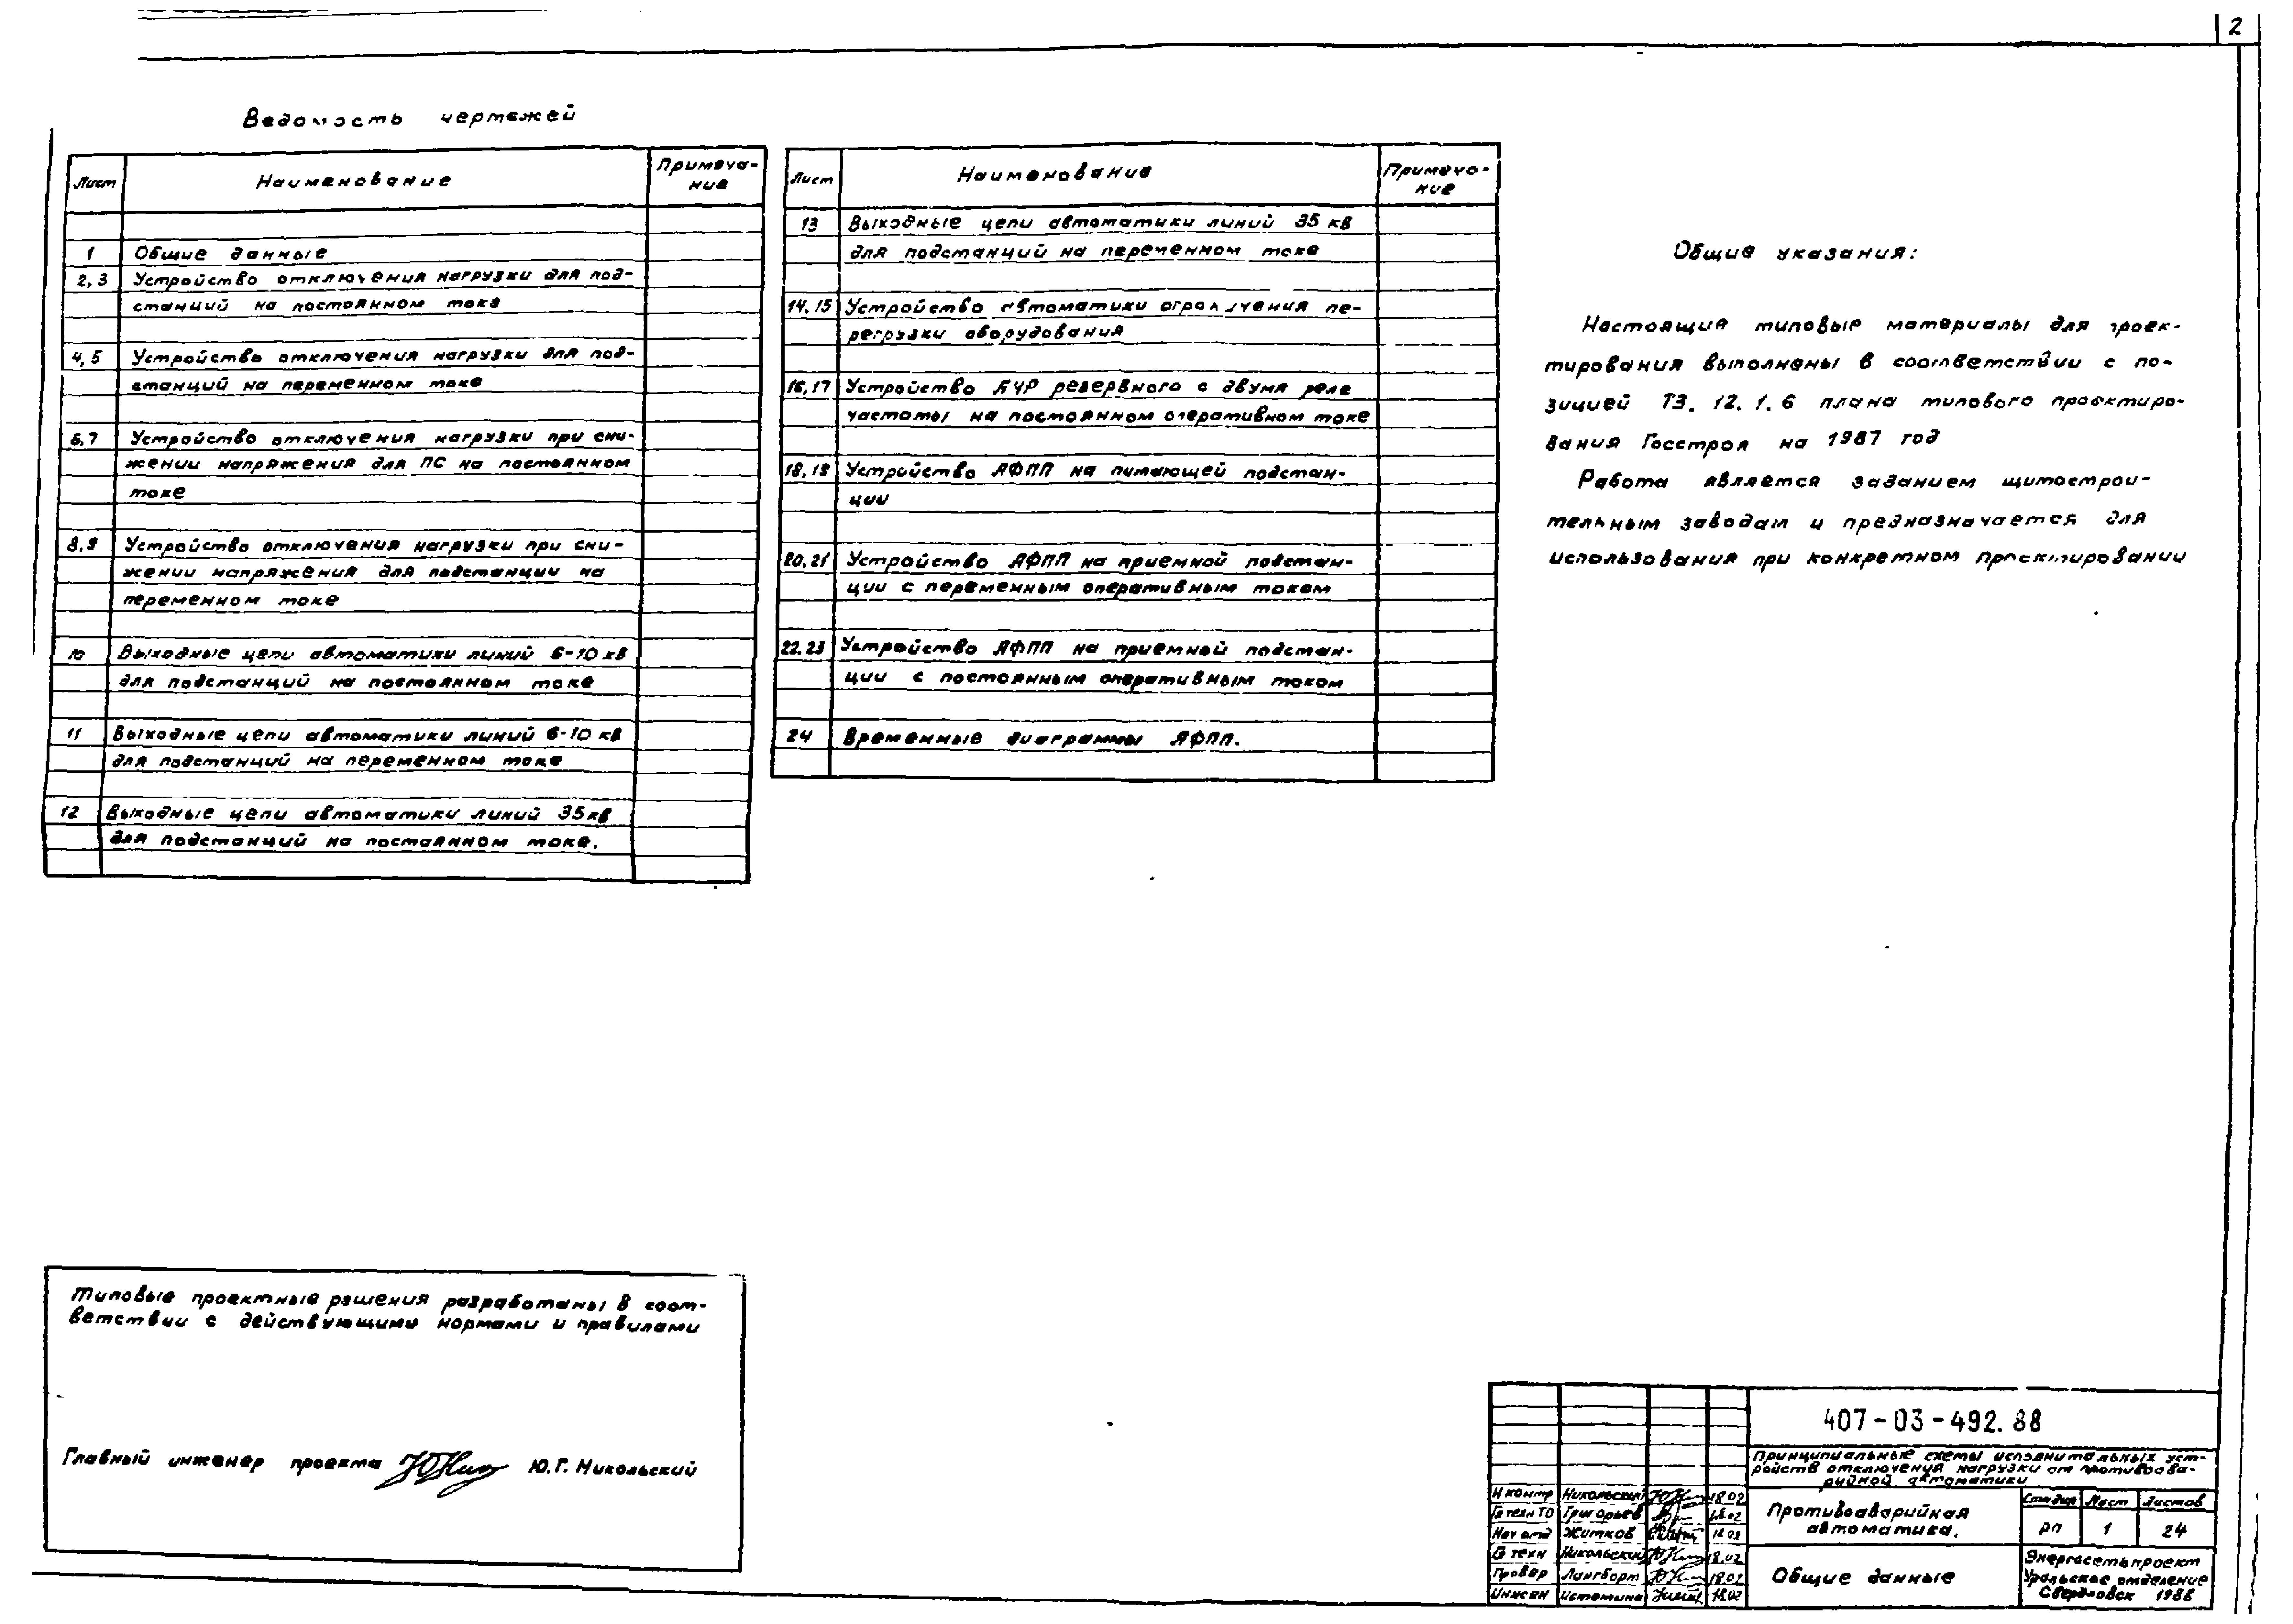 2
Ведомость чертежей
Лист Наименование Примеча-
ние
1 Общие данные
2,3 Устройство отключения нагрузки для под-
станций на постоянном токе
4,5 Устройство отключения нагрузки для под-
станций на переменном токе
6,7 Устройство отключения нагрузки при сни-
жении напряжения для ПС на постоянном
токе
8,9 Устройство отключения нагрузки при сни-
жении напряжения для подстанции на
переменном токе
10 Выходные цепи автоматики линий 6-10 кВ
для подстанций на постоянном токе
11 Выходные цепи автоматики линий 6-10 кВ
для подстанций на переменном токе
12 Выходные цепи автоматики линий 35 кВ
для подстанций на постоянном токе.
Лист Наименование Примеча-
ние
13 Выходные цепи автоматики линий 35 кВ
для подстанций на переменном токе
14,15 Устройство автоматики ограничения пе-
регрузки оборудования
16,17 Устройство АЧР резервного с двумя реле
частоты на постоянном оперативном токе
18,19 Устройство АФПП на питающей подстан-
ции
20,21 Устройство АФПП на приемной подстан-
ции с переменным оперативным током
22,23 Устройство АФПП на приемной подстан-
ции с постоянным оперативным током
24 Временные диаграммы АФПП.
Общие указания:
Настоящие типовые материалы для проек-
тирования выполнены в соответствии с по-
зицией Т3.12.1.6 плана типового проектиро-
вания Госстроя на 1987 год
Работа является заданием щитострои-
тельным заводам и предназначается для
использования при конкретном проектировании
Типовые проектные решения разработаны в соот-
ветствии с действующими нормами и правилами
Главный инженер проекта Ю.Г. Никольский
407-03-492.88
Принципиальные схемы исполнительных уст-
ройств отключения нагрузки от противоава-
рийной автоматики
Н контр Никольский 18.02
Гл техн ТО Григорьев 18.02
Нач отд Житков 18.02
Гл техн Никольский 18.02
Провер Лангборт 18.02
Инжен Истомина 18.02
Противоаварийная
автоматика.
Стадия Лист Листов
РП 1 24
Общие данные
Энергосетьпроект
Уральское отделение
Свердловск 1988